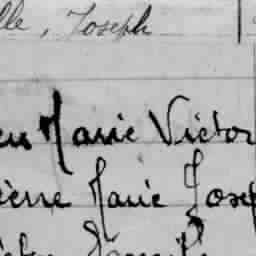 lle, Joseph
eu Marie Victor
ierre Marie Josep